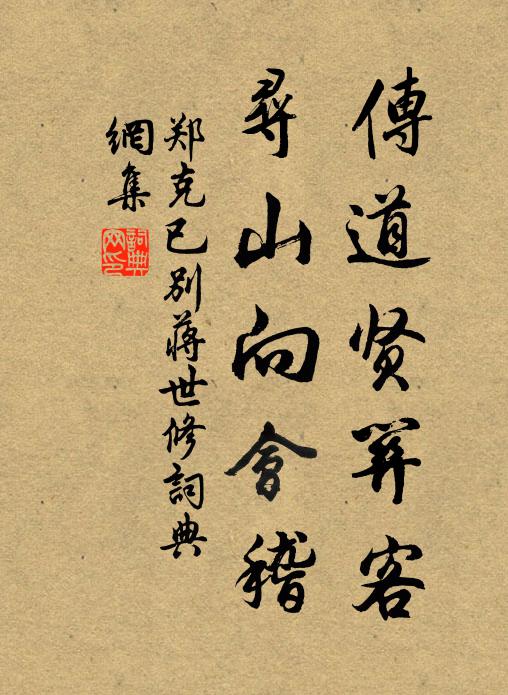 傳道贤契客
尋山向會稽
郑克已别蒋世修詞典
網集
詞典
网印